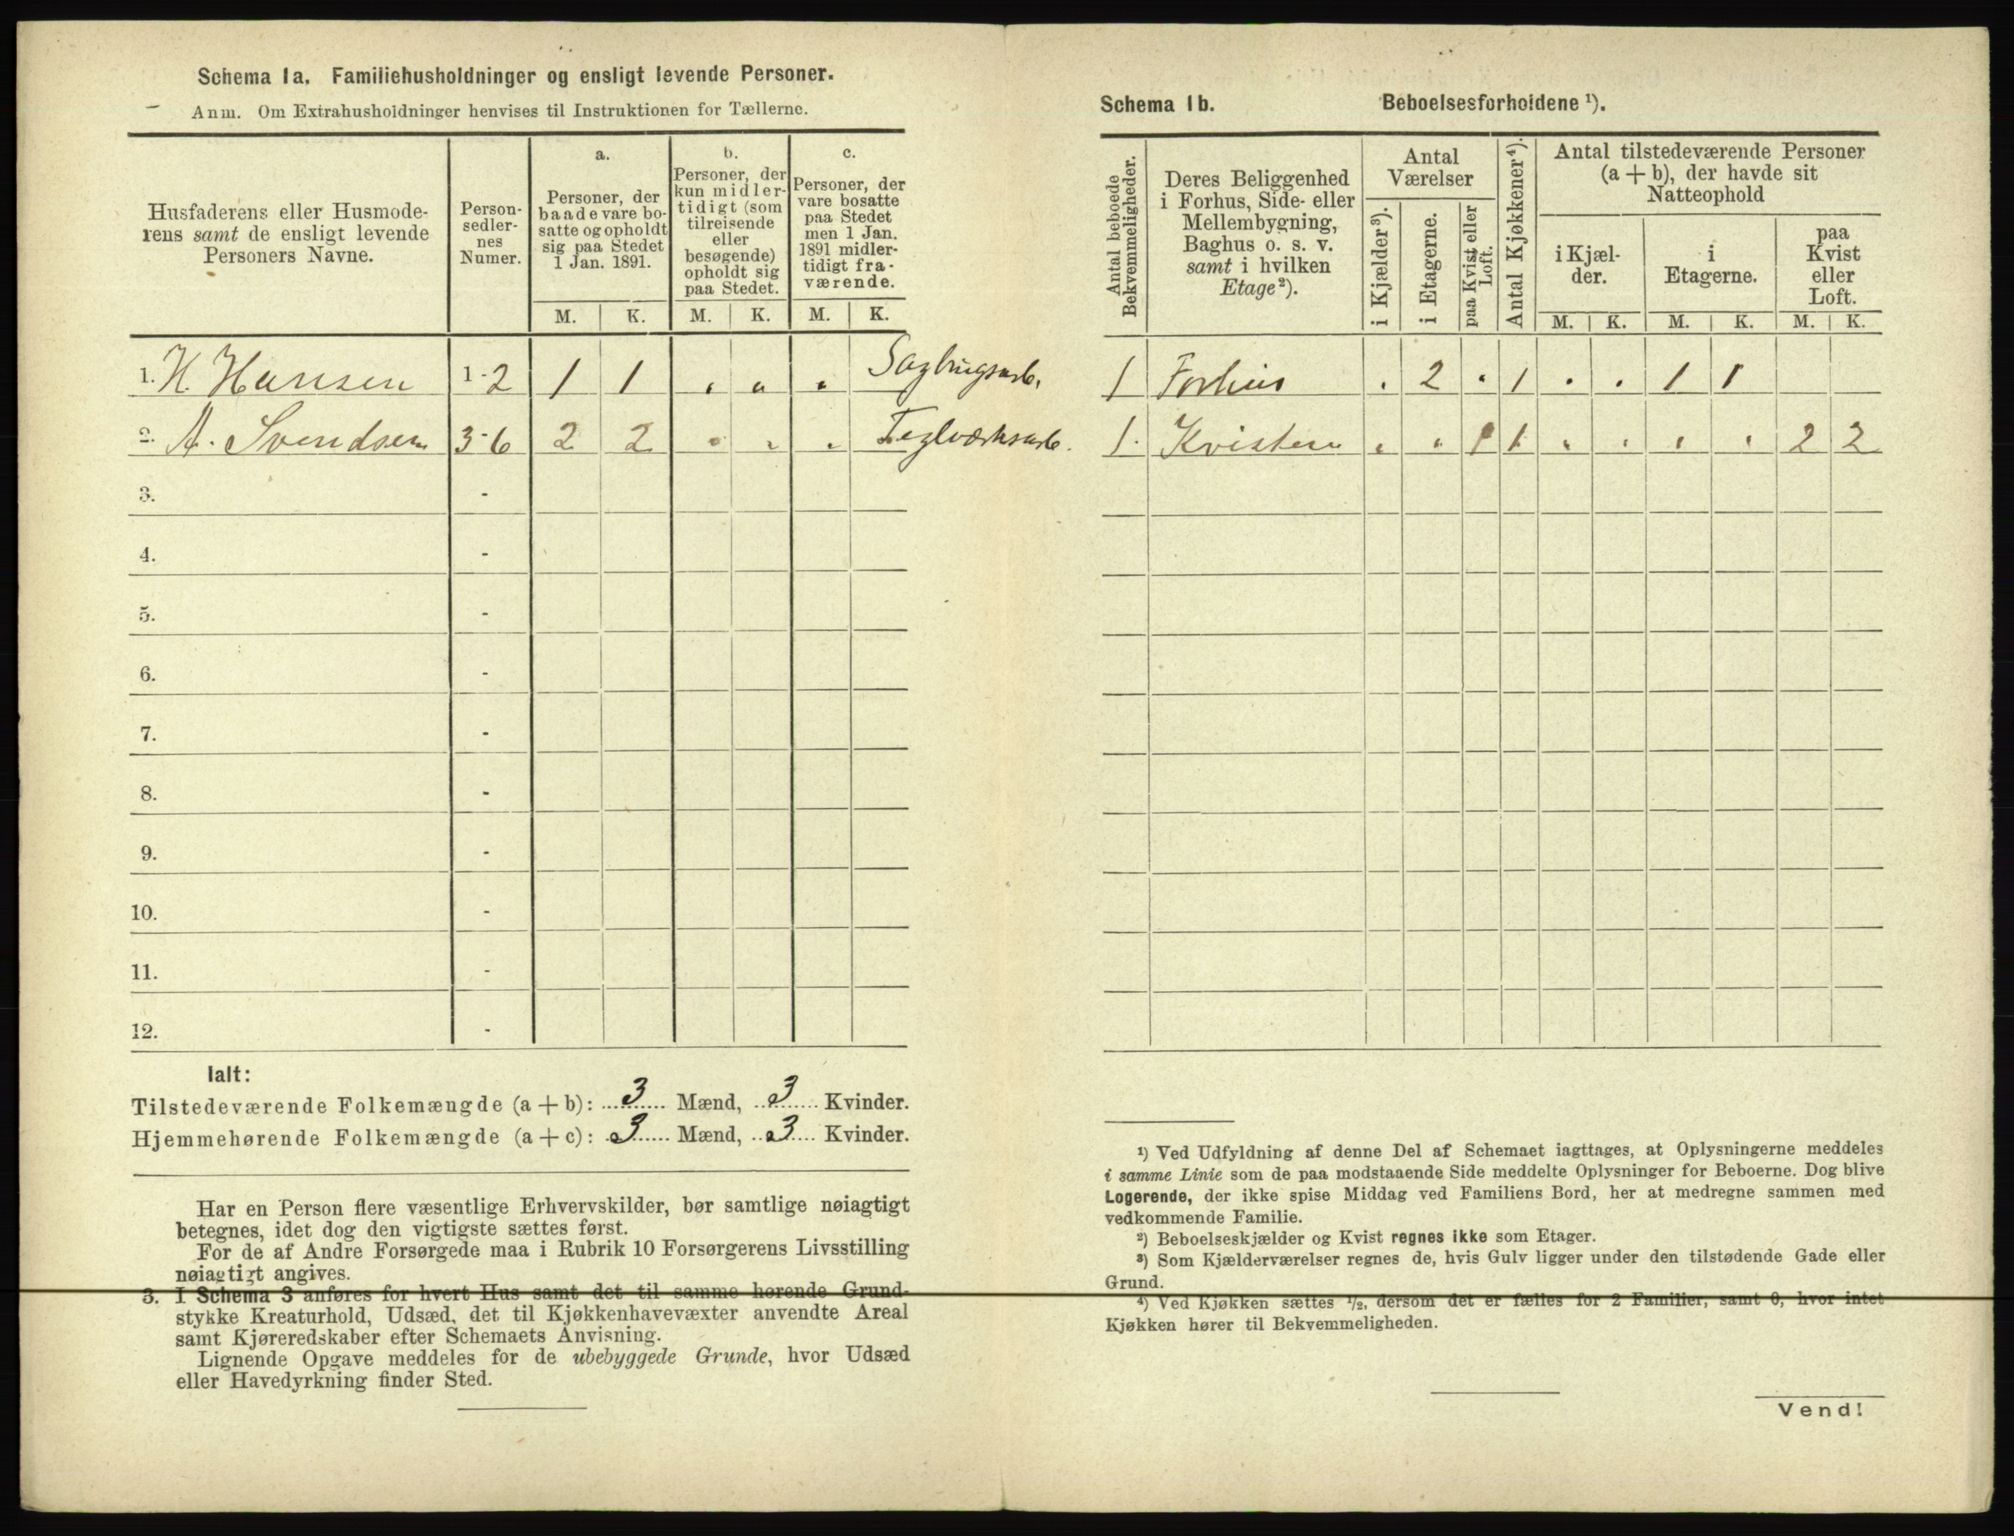 Schema 1a. Familiehusholdninger og ensligt levende Personer.
Anm. Om Extrahusholdninger henvises til Instruktionen for Tællerne.
Husfaderens eller Husmode-
rens samt de ensligt levende
Personers Navne.
Person-
sedler-
nes
Numer.
a.
Personer, der
baade vare bo-
satte og opholdt
sig paa Stedet
1 Jan. 1891.
b.
Personer, der
kun midler-
tidigt (som
tilreisende
eller
besøgende)
opholdt sig
paa Stedet.
c.
Personer, der
vare bosatte
paa Stedet
men 1 Jan.
1891 midler-
tidigt fra-
værende.
M. K. M. K. M. K.
1. H. Hansen 1-2 1 1 Sagbrugsarb.
2. A. Svendsen 3-6 2 2 Teglværksarb.
3. -
4. -
5. -
6. -
7. -
8. -
9. -
10. -
11. -
12. -
Ialt:
Tilstedeværende Folkemængde (a + b): 3 Mænd, 3 Kvinder.
Hjemmehørende Folkemængde (a + c): 3 Mænd, 3 Kvinder.
Har en Person flere væsentlige Erhvervskilder, bør samtlige nøiagtigt
betegnes, idet dog den vigtigste sættes først.
For de af Andre Forsørgede maa i Rubrik 10 Forsørgerens Livsstilling
nøiagtigt angives.
3. I Schema 3 anføres for hvert Hus samt det til samme hørende Grund-
stykke Kreaturhold, Udsæd, det til Kjøkkenhavevæxter anvendte Areal
samt Kjøreredskaber efter Schemaets Anvisning.
Lignende Opgave meddeles for de ubebyggede Grunde, hvor Udsæd
eller Havedyrkning finder Sted.
Schema 1b. Beboelsesforholdene ¹).
Antal beboede
Bekvemmeligheder.
Deres Beliggenhed
i Forhus, Side- eller
Mellembygning,
Baghus o. s. v.
samt i hvilken
Etage²).
Antal
Værelser
i Kjælder³).
i Etagerne.
paa Kvist eller
Loft.
Antal Kjøkkener⁴).
Antal tilstedeværende Personer
(a + b), der havde sit
Natteophold
i Kjæl-
der.
i
Etagerne.
paa
Kvist
eller
Loft.
M. K. M. K. M. K.
1 Forhus 2 1 1 1
1. Kvisten 1 1 2 2
¹) Ved Udfyldning af denne Del af Schemaet iagttages, at Oplysningerne meddeles
i samme Linie som de paa modstaaende Side meddelte Oplysninger for Beboerne. Dog blive
Logerende, der ikke spise Middag ved Familiens Bord, her at medregne sammen med
vedkommende Familie.
²) Beboelseskjælder og Kvist regnes ikke som Etager.
³) Som Kjælderværelser regnes de, hvis Gulv ligger under den tilstødende Gade eller
Grund.
⁴) Ved Kjøkken sættes ½, dersom det er fælles for 2 Familier, samt 0, hvor intet
Kjøkken hører til Bekvemmeligheden.
Vend!